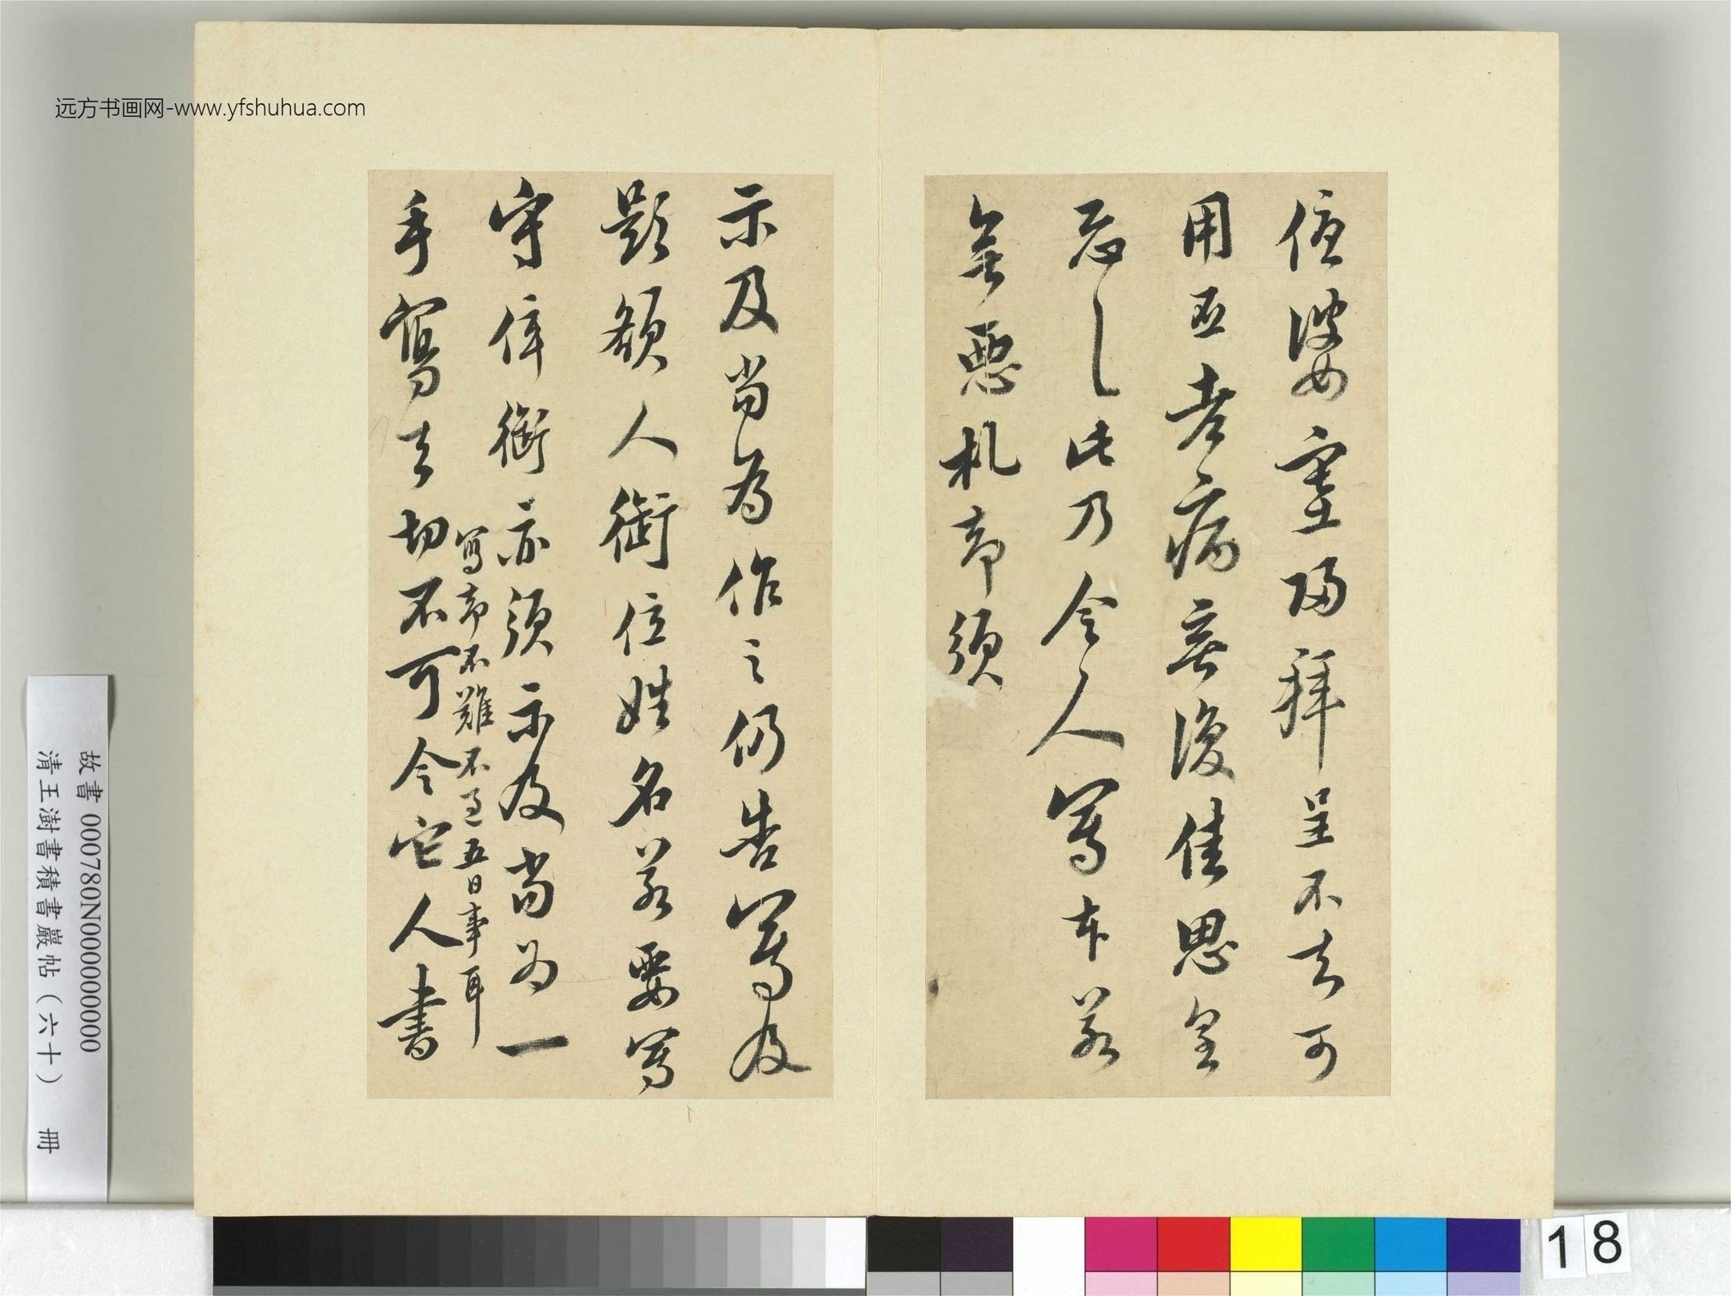 拜呈不知可
用否老病無復佳思皇
恐〻此乃令人寫本若
無惡札即須
示及當為作之仍告寫及
題額人銜位姓名若要寫
守倅銜亦須示及當為一
手寫去切不可令它人書
寫即不難不過五日事耳
远方书画网-www.yfshuhua.com
故書 000780N000000000
清王澍書積書巖帖(六十) 冊
18